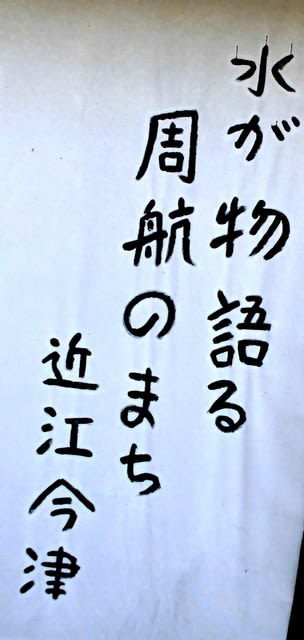 水が物語る
周航のまち
近江今津